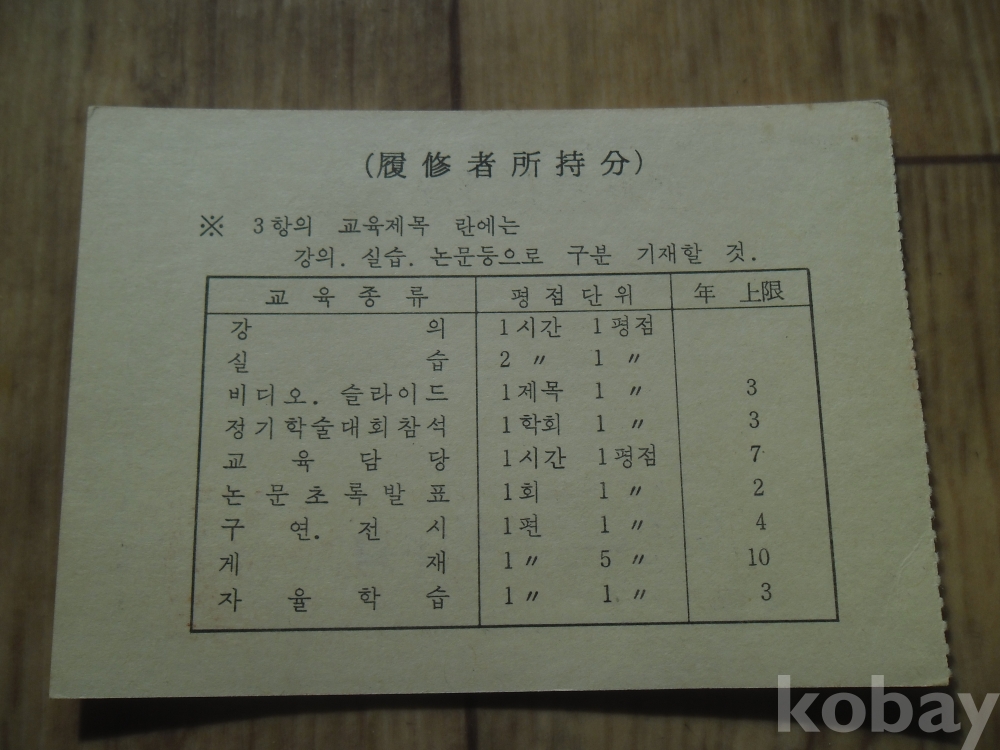 (履修者所持分)
※ 3항의 교육제목 란에는
강의. 실습. 논문등으로 구분 기재할 것.
교육종류 평점단위 年 上限
강의 1시간 1평점
실습 2 〃 1 〃
비디오. 슬라이드 1제목 1 〃 3
정기학술대회참석 1학회 1 〃 3
교육담당 1시간 1평점 7
논문초록발표 1회 1 〃 2
구연. 전시 1편 1 〃 4
게재 1 〃 5 〃 10
자율학습 1 〃 1 〃 3
kobay